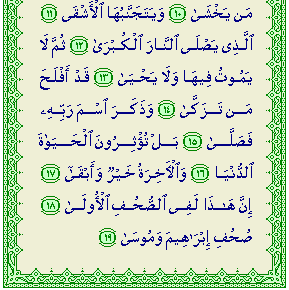 مَن يَخْشَىٰ ١٠ وَيَتَجَنَّبُهَا ٱلْأَشْقَى ١١
ٱلَّذِى يَصْلَى ٱلنَّارَ ٱلْكُبْرَىٰ ١٢ ثُمَّ لَا
يَمُوتُ فِيهَا وَلَا يَحْيَىٰ ١٣ قَدْ أَفْلَحَ
مَن تَزَكَّىٰ ١٤ وَذَكَرَ ٱسْمَ رَبِّهِۦ
فَصَلَّىٰ ١٥ بَلْ تُؤْثِرُونَ ٱلْحَيَوٰةَ
ٱلدُّنْيَا ١٦ وَٱلْأَخِرَةُ خَيْرٌ وَأَبْقَىٰٓ ١٧
إِنَّ هَـٰذَا لَفِى ٱلصُّحُفِ ٱلْأُولَىٰ ١٨
صُحُفِ إِبْرَٰهِيمَ وَمُوسَىٰ ١٩